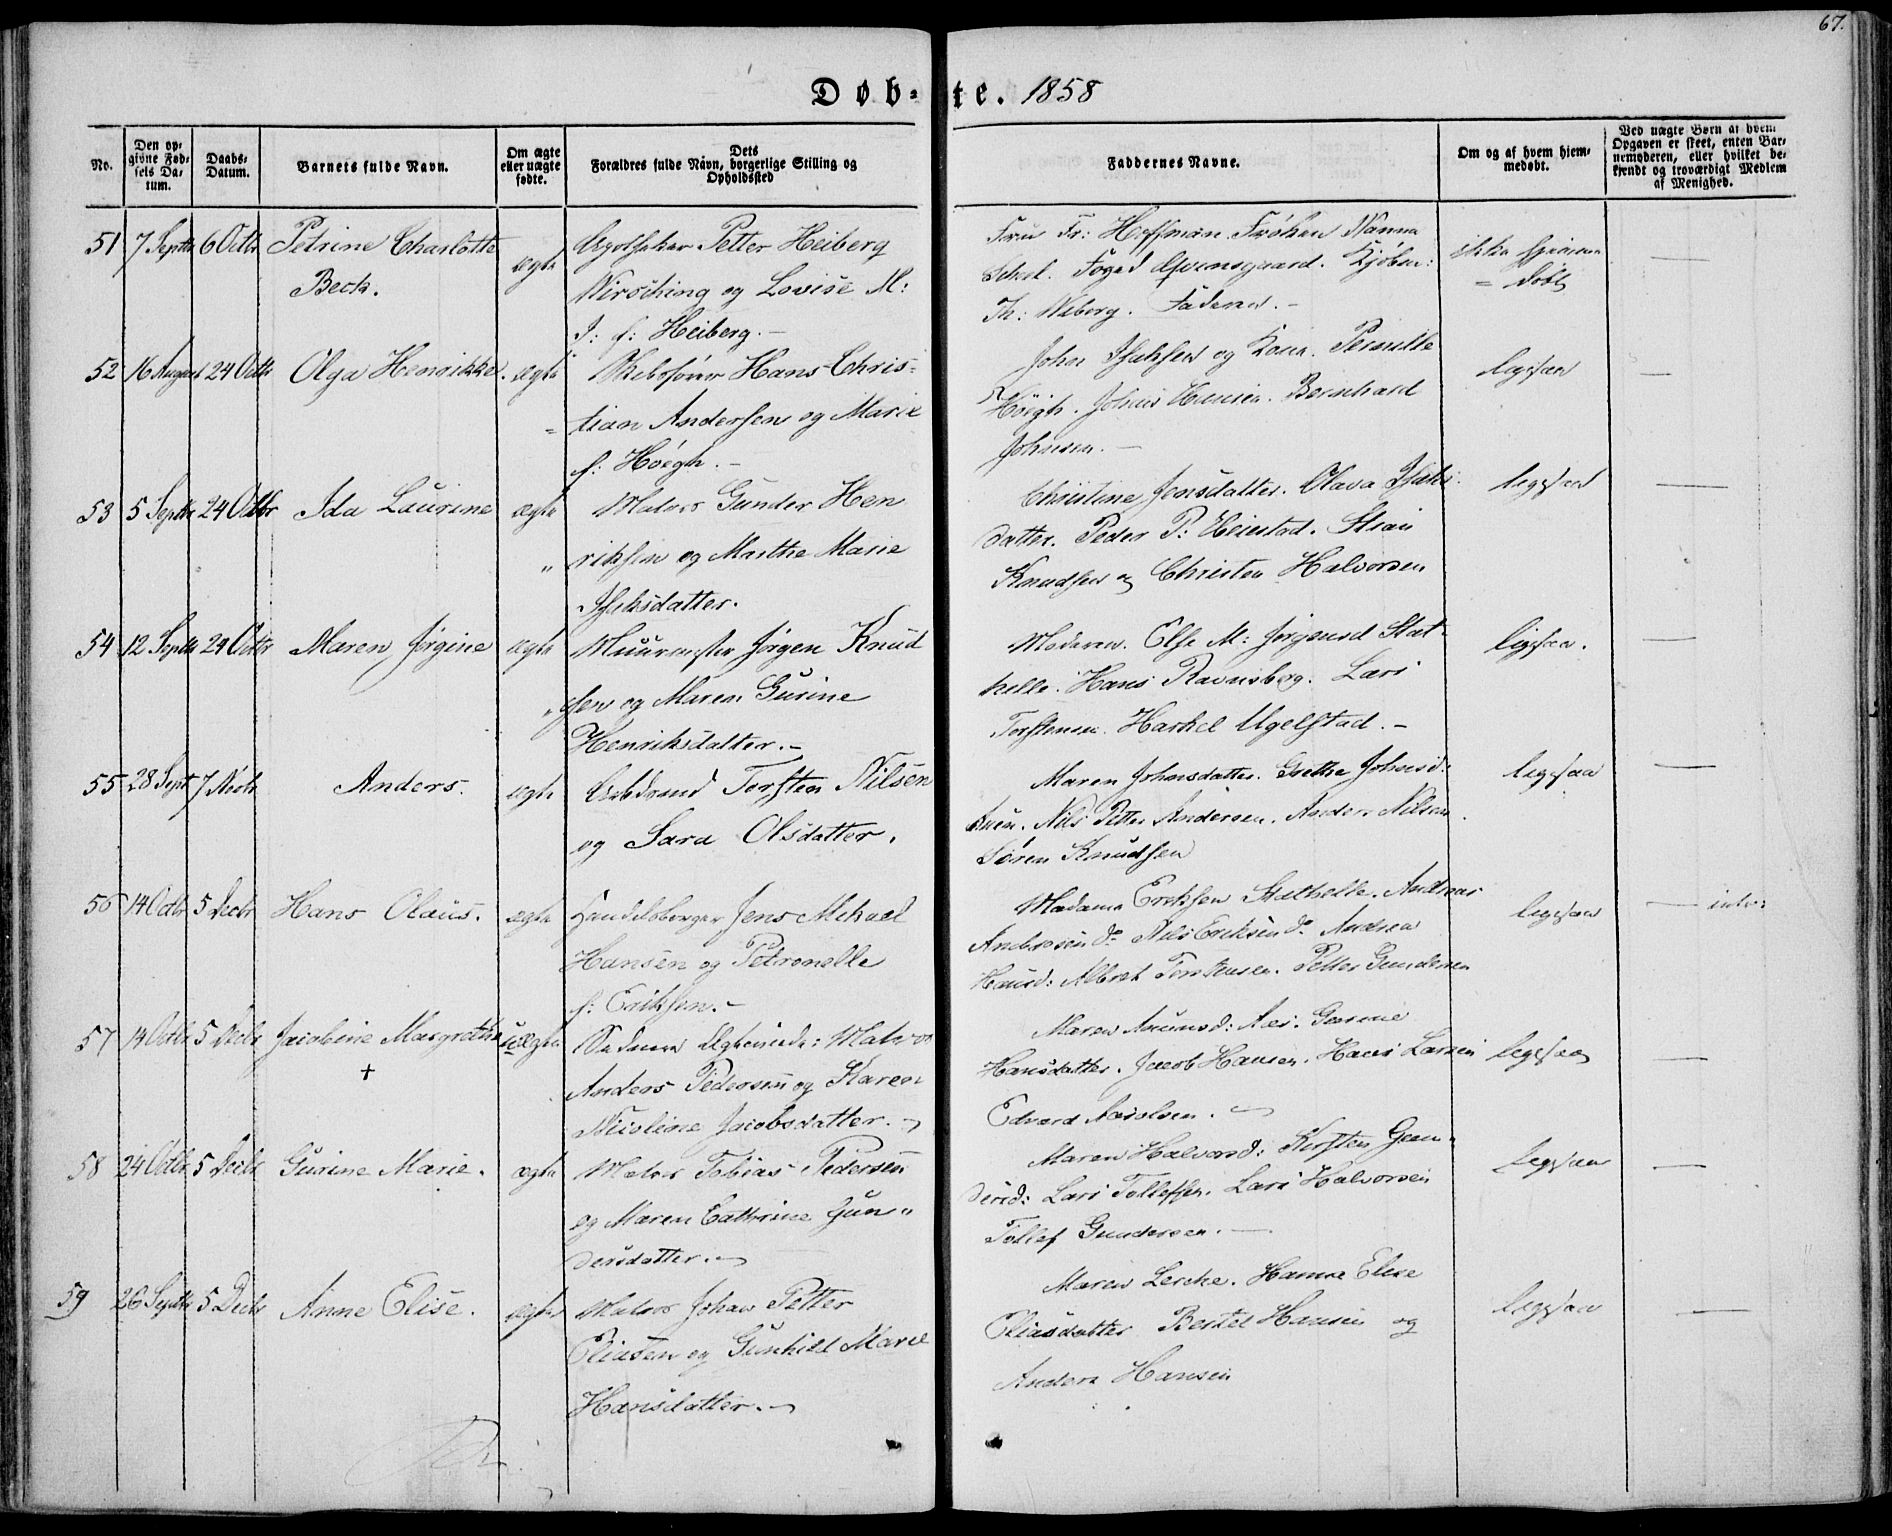 67.
Døb= te. 1858
No.
Den op=
givne Fød=
sels Da=
tum.
Daabs=
Datum.
Barnets fulde Navn.
Om ægte
eller uægte
fødte.
Dets
Forældres fulde Navn, borgerlige Stilling og
Opholdssted
Faddernes Navne.
Om og af hvem hjem=
medøbt.
Ved uægte Børn af hvem
Opgaven er skeet, enten Bar=
nemoderen, eller hvilket be=
kjendt og troværdigt Medlem
af Menighed.
51 7 Septbr 6 Octbr Petrine Charlotte
Beck.
ægte
Apotheker Petter Heiberg
Wirsching og Lovise M:
J: f: Heiberg. –
Fru Fr: Hoffman. Frøken Nanna
Schel. Foged Qvensgaard. Kjøbm:
Th: Wiborg. Faderen. –
ikke hjemme
= døbt
52 16 August 24 Octbr Olga Henrikke. ægte
Skibsfører Hans Chris=
tian Andersen og Marie
f: Høegh. –
John Isaksen og Kone. Pernille
Høegh. Johnes Hansen. Bernhard
Johnsen. –
ligesaa
53 5 Septbr 24 Octbr Ida Laurine ægte
Matros Gunder Hen
" riksen og Marthe Marie
Isaksdatter.
Christine Jensdatter. Olava Isaks:
datter. Peder P: Heiestad. Stian
Knudsen og Christen Halvorsen
ligesaa
54 12 Septbr 24 Octbr Maren Jørgine ægte
Muurmester Jørgen Knud
" sen og Maren Gurine
Henriksdatter. –
Moderen. Else M: Jørgensd Stat=
helle. Hans Ravnsberg. Lars
Torstensen. Harkel Ugelstad. –
ligesaa.
55 28 Sept 7 Novbr Anders. ægte
Arbdmand Torsten Nilsen
og Sara Olsdatter.
Maren Johnsdatter. Grethe Johnsd:
Nils Petter Andersen. Anders Nilsen.
Søren Knudsen
ligesaa
56 14 Octbr 5 Decbr Hans Olaus. ægte
Handelsborger Jens Mikael
Hansen og Petronelle
f: Eriksen. –
Madame Eriksen Stathelle. Andreas
Ambrosen do Nils Eriksen do Andrea
Hansd: Albret Torstensen. Petter Gundersen
ligesaa
57 14 Octbr 5 Decbr Jacobine Margrethe uægte
+
Anders Pedersen og Karen
Nicoline Jacobsdatter. –
Maren Amunsd: Aas. Gurine
Hansdatter. Jacob Hansen. Hans Larsen
Edvard
ligesaa
58 24 Octbr 5 Decbr Gurine Marie. ægte
Matros Tobias Pedersen
og Maren Cathrine Gun"
dersdatter. –
Maren Halvorsd: Kirsten Gun=
dersd: Lars Tollefsen. Lars Halvorsen
Tollef Gundersen. –
ligesaa
59 26 Septbr 5 Decbr Anne Elise. ægte
Matros Johan Petter
Eliasen og Gunhild Marie
Hansdatter. –
Maren Lerche. Hanna Elise
Eliasdatter Bertel Hansen og
Anders Hansen
ligesaa